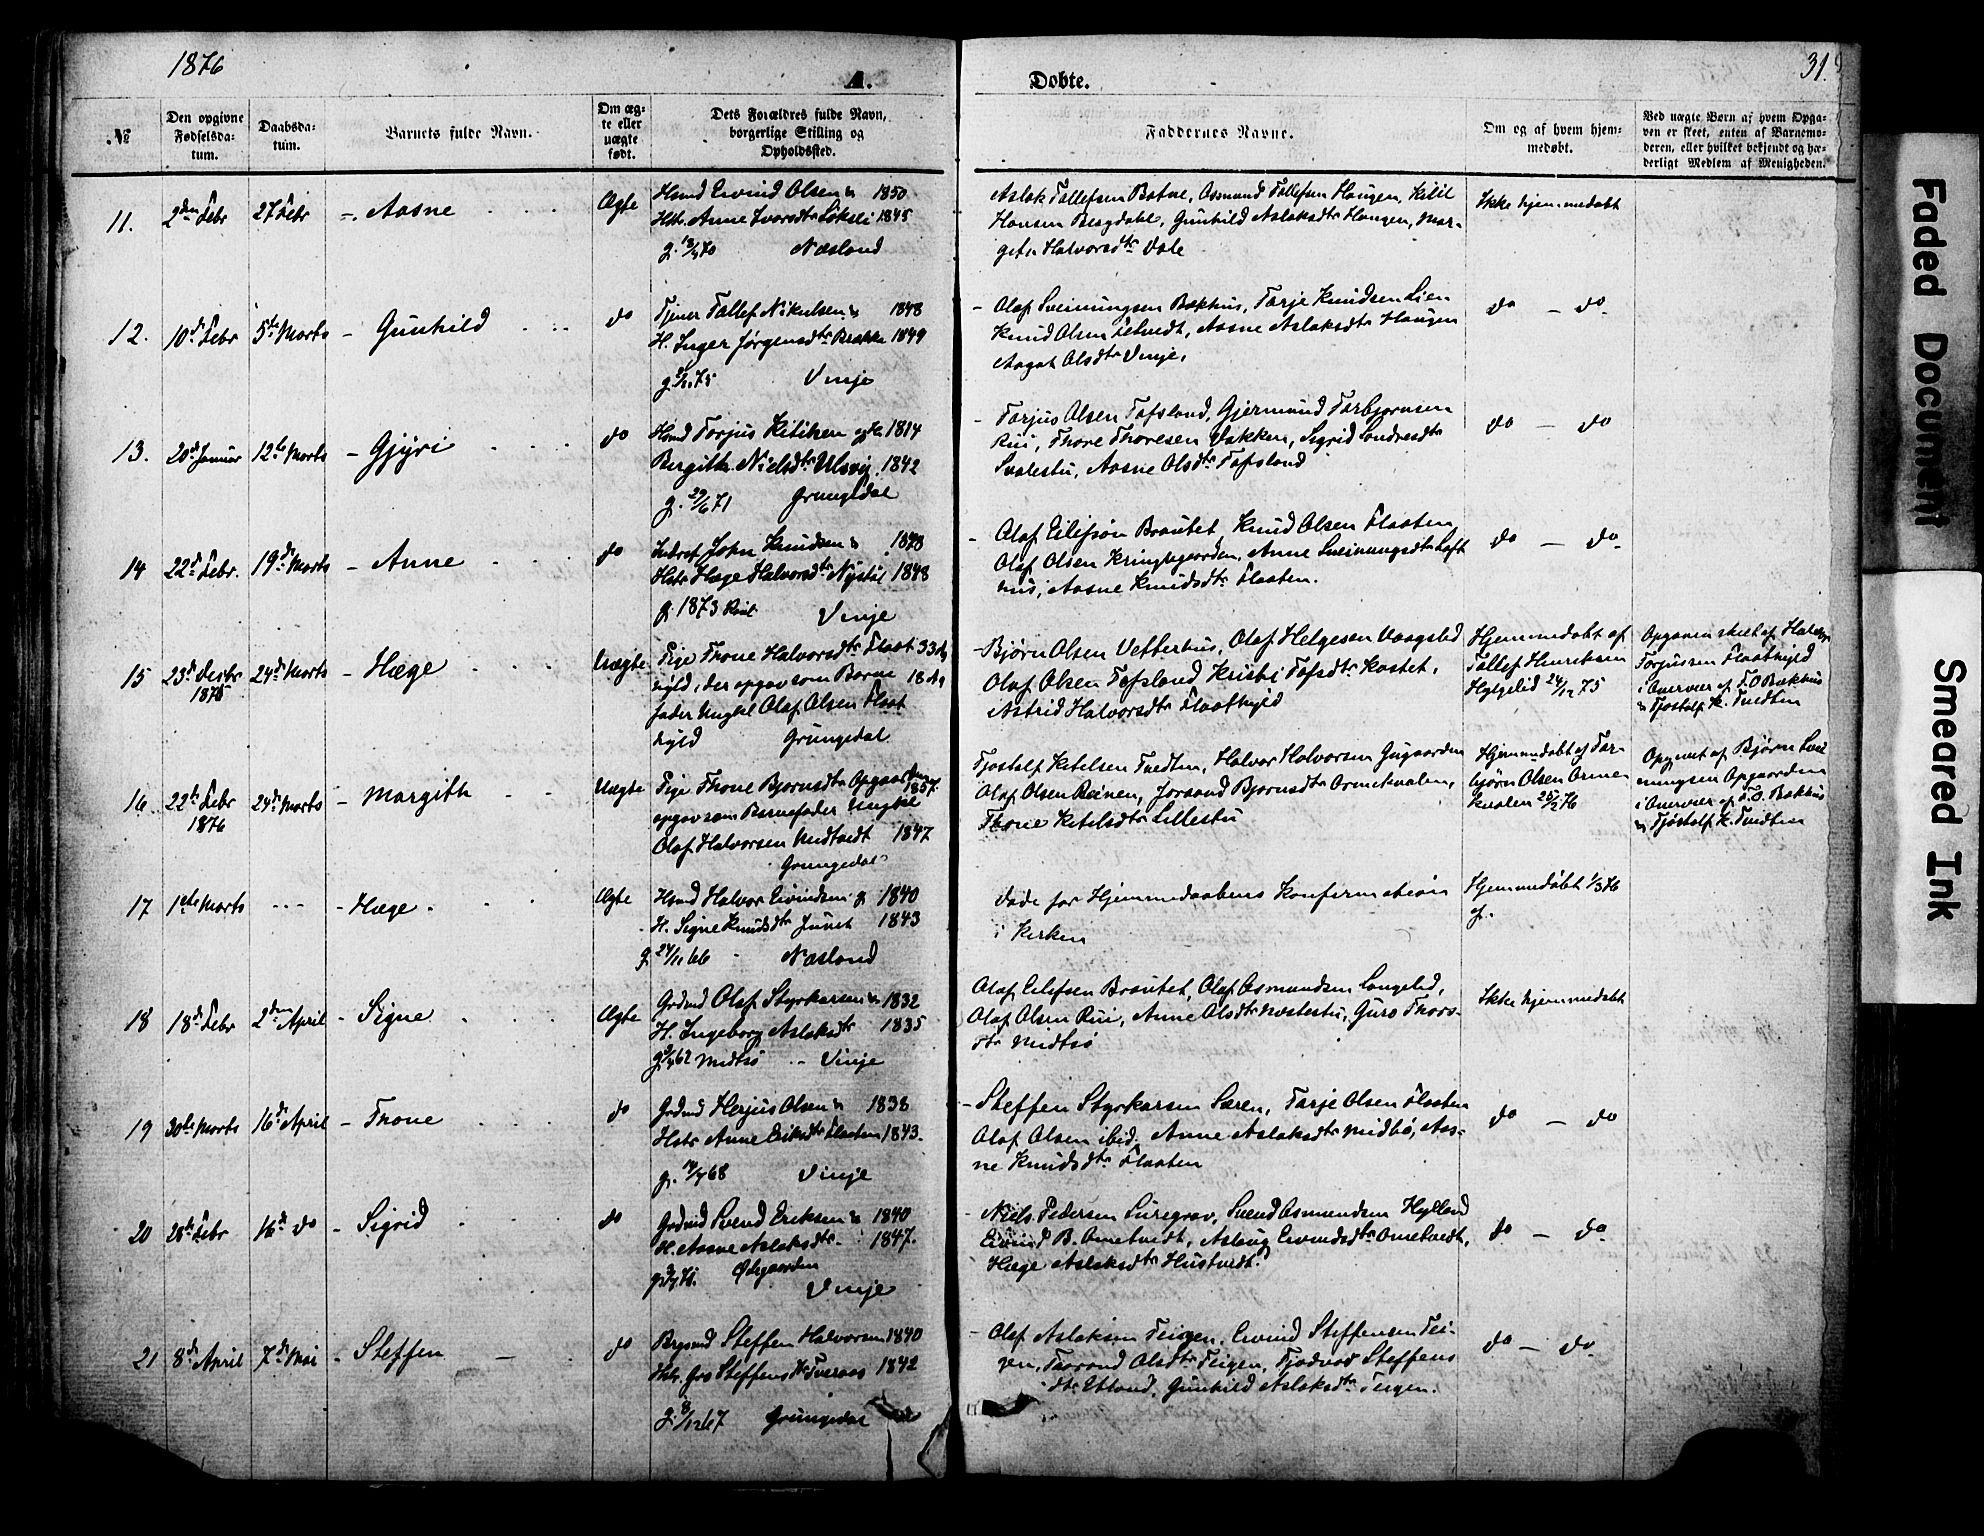 1876
A.
Dobte.
31.
№
Den opgivne Fødselsdatum.
Daabsdatum.
Barnets fulde Navn.
Om ægte eller uægte født.
Dets Forældres fulde Navn, borgerlige Stilling og Opholdssted.
Faddernes Navne.
Om og af hvem hjemmedøbt.
Ved uægte Børn af hvem Opgaven er skeet, enten af Barnemoderen, eller hvilket bekjendt og hæderligt Medlem af Menigheden.
11. 2den Febr 27 Febr - Aasne Ægte
Husmd Eivind Olsen 1850
Hstr. Anne Ivarsdtr 1845
Næsland
Aslak Tallefsen Botne, Osmund Tallefsen Haugen, Kitil
Hansen Bragdahl, Gunhild Aslaksdtr Haugen, Mar-
git Halvorsdtr Vale
Ikke hjemmedøbt
12. 10de Febr 5te Marts - Gunhild do
Tjener Tallef Nikulsen 1848
H. Inger Jørgensdtr Brække 1849
Vinje
- Olaf Sveinungsen Bækhus, Tarje Knudsen Lien
Knud Olsen Edtvedt, Aasne Aslaksdtr Haugen
Aagot Olsdtr Vinje.
do - do
13. 20de Januar 12te Marts - Gjyri do
Husmd Torjus Kitilsen 1814
Bergithe Nielsdtr Ulsvig 1842
g. 29/6 71 Grungedal
- Torjus Olsen Tofsland, Gjermund Torbjørnsen
Rui, Thore Thoresen Bakken, Sigrid Sondresdtr
Svalestu, Aasne Olsdtr Tofsland
do - do
14 22de Febr. 19de Marts - Anne do
Inderst John Knudsen 1848
Hstr Hæge Halvorsdtr Nystøl 1848
g. 1873 Vinje
- Olaf Eilifsøn Brautet, Knud Olsen Flaaten
Olaf Olsen Kringlegaarden, Anne Sveinungsdtr Loft
hus, Aasne Knudsdtr Flaaten.
do - do
15 23de Decbr 24de Marts - Hæge Uægte
1875
Pige Thone Halvorsdtr Flaat 33 Ar
hyld, der opgav som Barne 18 Ar
fader Ungkl Olaf Olsen Flaat
hyld Grungedal
- Bjørn Olsen Vetterhus, Olaf Helgesen Vaagslid
Olaf Olsen Tofsland Kristi Tofsdtr Kostet,
Astrid Halvorsdtr Flaathyld
Hjemmedøbt af
Tallef Henriksen
Hylgelid 24/12 75
Opgaven skeet af Halvor
Torjussen Flaathyld
i Overvær af T.O. Bækhus
& Tjøstolf K. Tvedten
16. 22de Febr 24de Marts - Margith Uægte
1876
Pige Thone Bjørnsdtr Opgaarden 1857.
opgav som Barnefader Ungkl
Olaf Halvorsen Midtvedt 1847
Grungedal
Tjøstolf Ketilsen Tvedten, Halvor Halvorsen Gugaarden
Olaf Olsen Reinen, Joraand Bjørnsdtr Ormekvalen,
Thone Ketilsdtr Lillestu
Hjemmedøbt af Tor-
bjørn Olsen Orme-
kvalen 25/2 76
Opgivet af Bjørn Svei
nungsen Opgaarden
i Overvær af T.O. Bækhus
& Tjøstolf K. Tvedten
17 1ste Marts - Hæge Ægte
Husmd Halvor Eivindsen 1840
H. Signe Knudsdtr Juvet 1843
g. 24/11 66 Næsland
døde før Hjemmedaabens Konfirmation
i Kirken
Hjemmedøbt 1/3 76
af.
18 18de Febr 2den April - Signe Ægte
Grdmd Olaf Styrkarsen 1832
H. Ingeborg Aslaksdtr 1835
Midtbø Vinje
Olaf Eilefsen Brautet, Olaf Osmundsen Longelid,
Olaf Olsen Rui, Anne Olsdtr Nordstu, Guro Thors-
dtr Midtbø
Ikke hjemmedøbt
19 30te Marts 16de April - Thone do
Grdmd Herjus Olsen 1838
Hstr Anne Eriksdtr Flaaten 1843.
g. 14/7 68 Vinje
- Steffen Styrkarsen Særen, Tarje Olsen Flaaten
Olaf Olsen ibid. Anne Aslaksdtr Midbø, Aas-
ne Knudsdtr Flaaten
do - do
20 28de Febr 16de do - Sigrid do
Grdmd Svend Eriksen 1840
H. Aasne Aslaksdtr 1847.
Ødegaarden
Vinje
- Niels Pedersen Suregrav, Svend Osmundsen Hylland
Eivind B. Ometvedt, Aslaug Eivindsdtr Ometvedt,
Hæge Aslaksdtr Hustvedt.
do - do
21 8de April 7de Mai - Steffen do
Bygsmd Steffen Halvorsen 1840
Hstr. Gro Steffensdtr Tveraas 1842
g. 8/12 67 Grungedal
- Olaf Aslaksen Teigen, Eivind Steffensen Tei-
gen, Taarand Olsdtr Teigen, Tjodvor Steffens
dtr Edland, Gunhild Aslaksdtr Teigen.
do - do
Faded Document
Smeared Ink